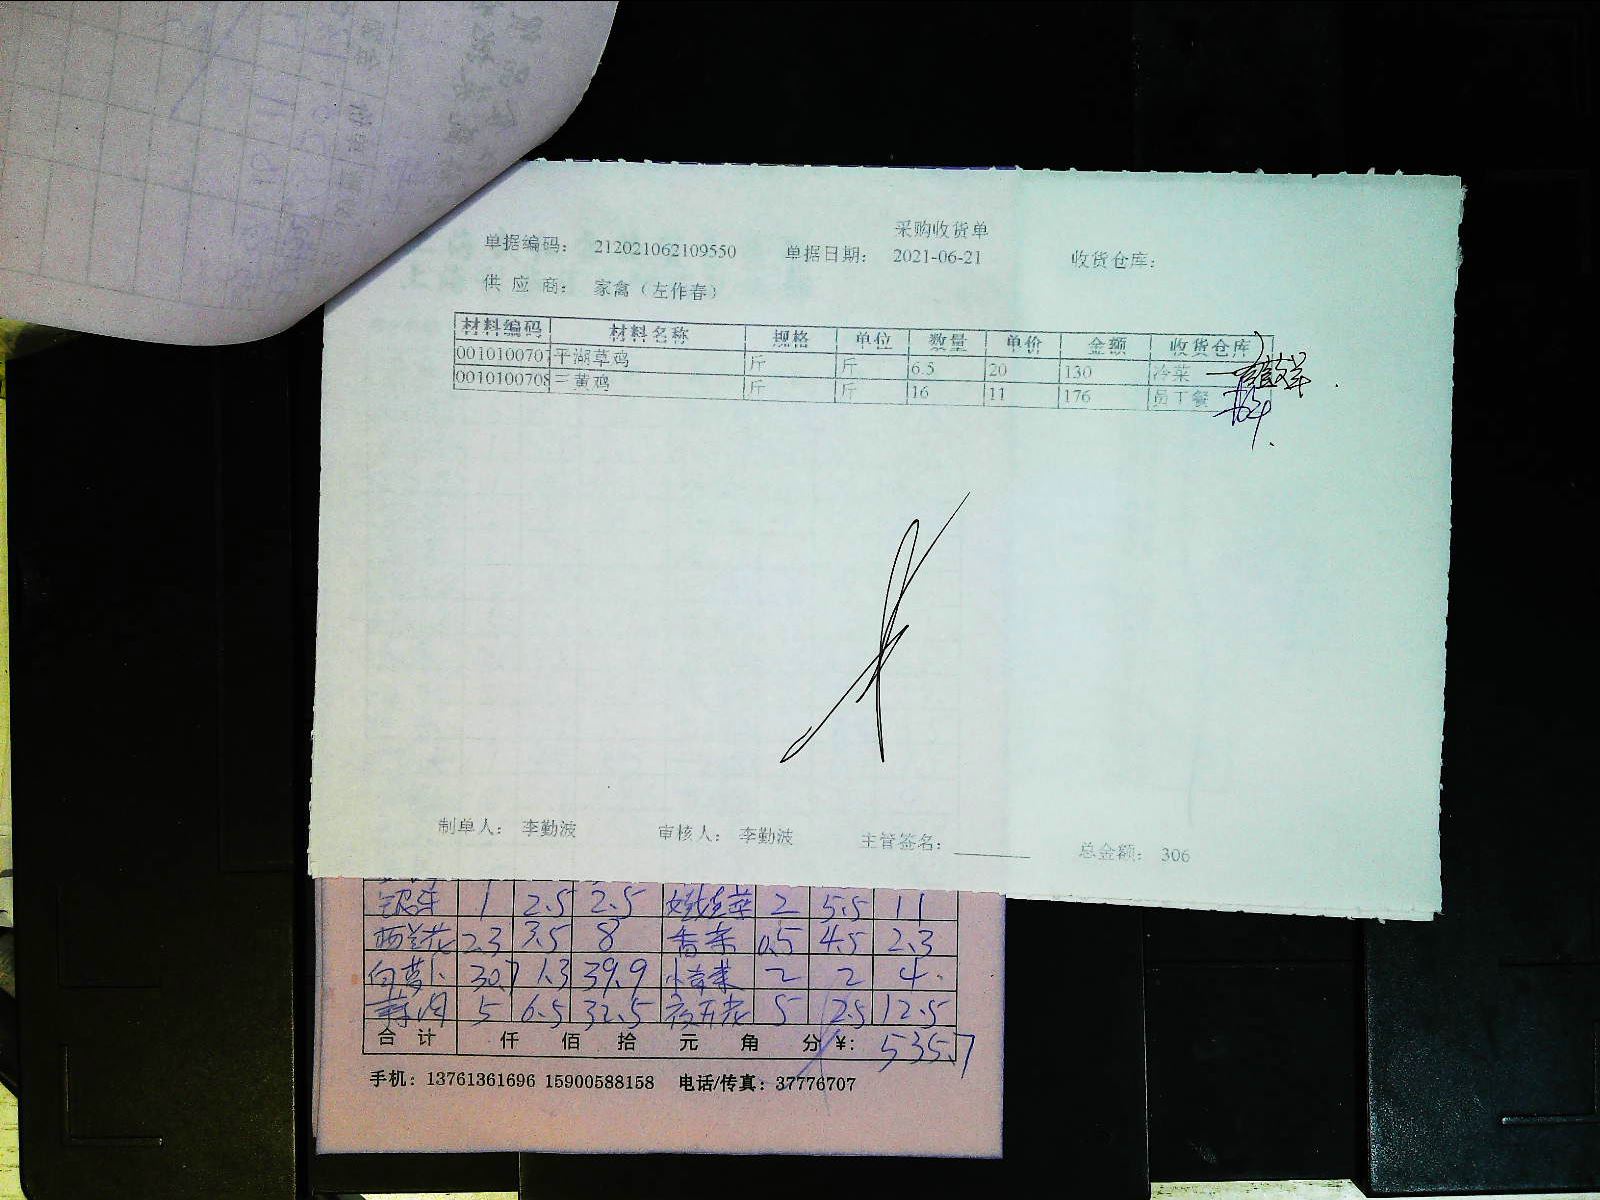 采购收货单
单据编码： 212021062109550 单据日期： 2021-06-21 收货仓库：
供 应 商： 家禽（左作春）
材料编码 材料名称 规格 单位 数量 单价 金额 收货仓库
0010100707 平湖草鸡 斤 斤 6.5 20 130 冷菜
0010100708 三黄鸡 斤 斤 16 11 176 员工餐
制单人： 李勤波 审核人： 李勤波 主管签名： 总金额： 306
1 2.5 2.5 2 5.5 11
西兰花 2.3 3.5 8 香菜 0.5 4.5 2.3
白萝卜 30.7 1.3 39.9 小青菜 2 2 4
5 6.5 32.5 夜开花 5 2.5 12.5
合 计 仟 佰 拾 元 角 分 ¥： 535.7
手机：13761361696 15900588158 电话/传真：37776707